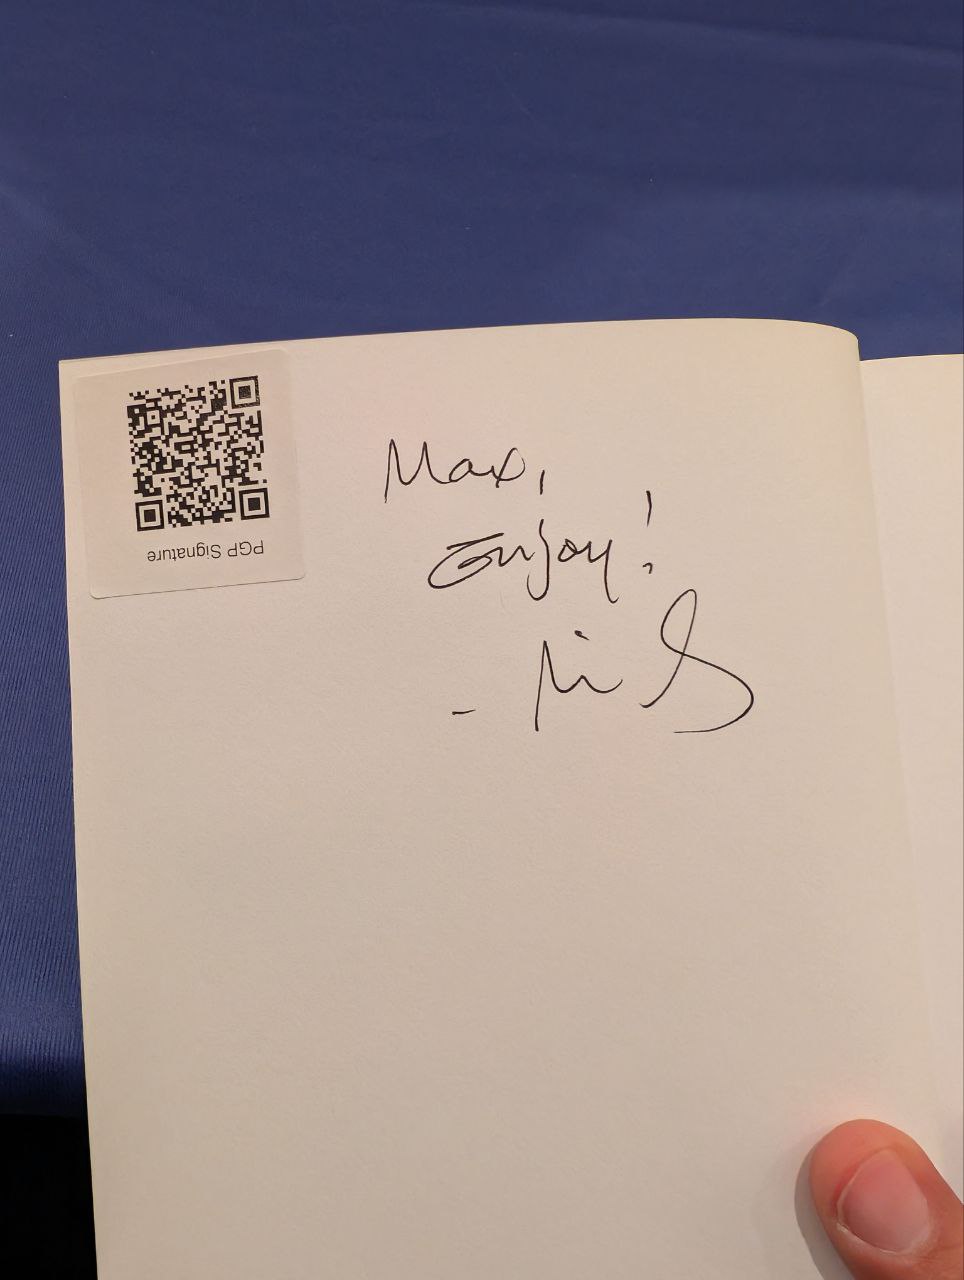 PGP Signature
Max,
Enjoy!